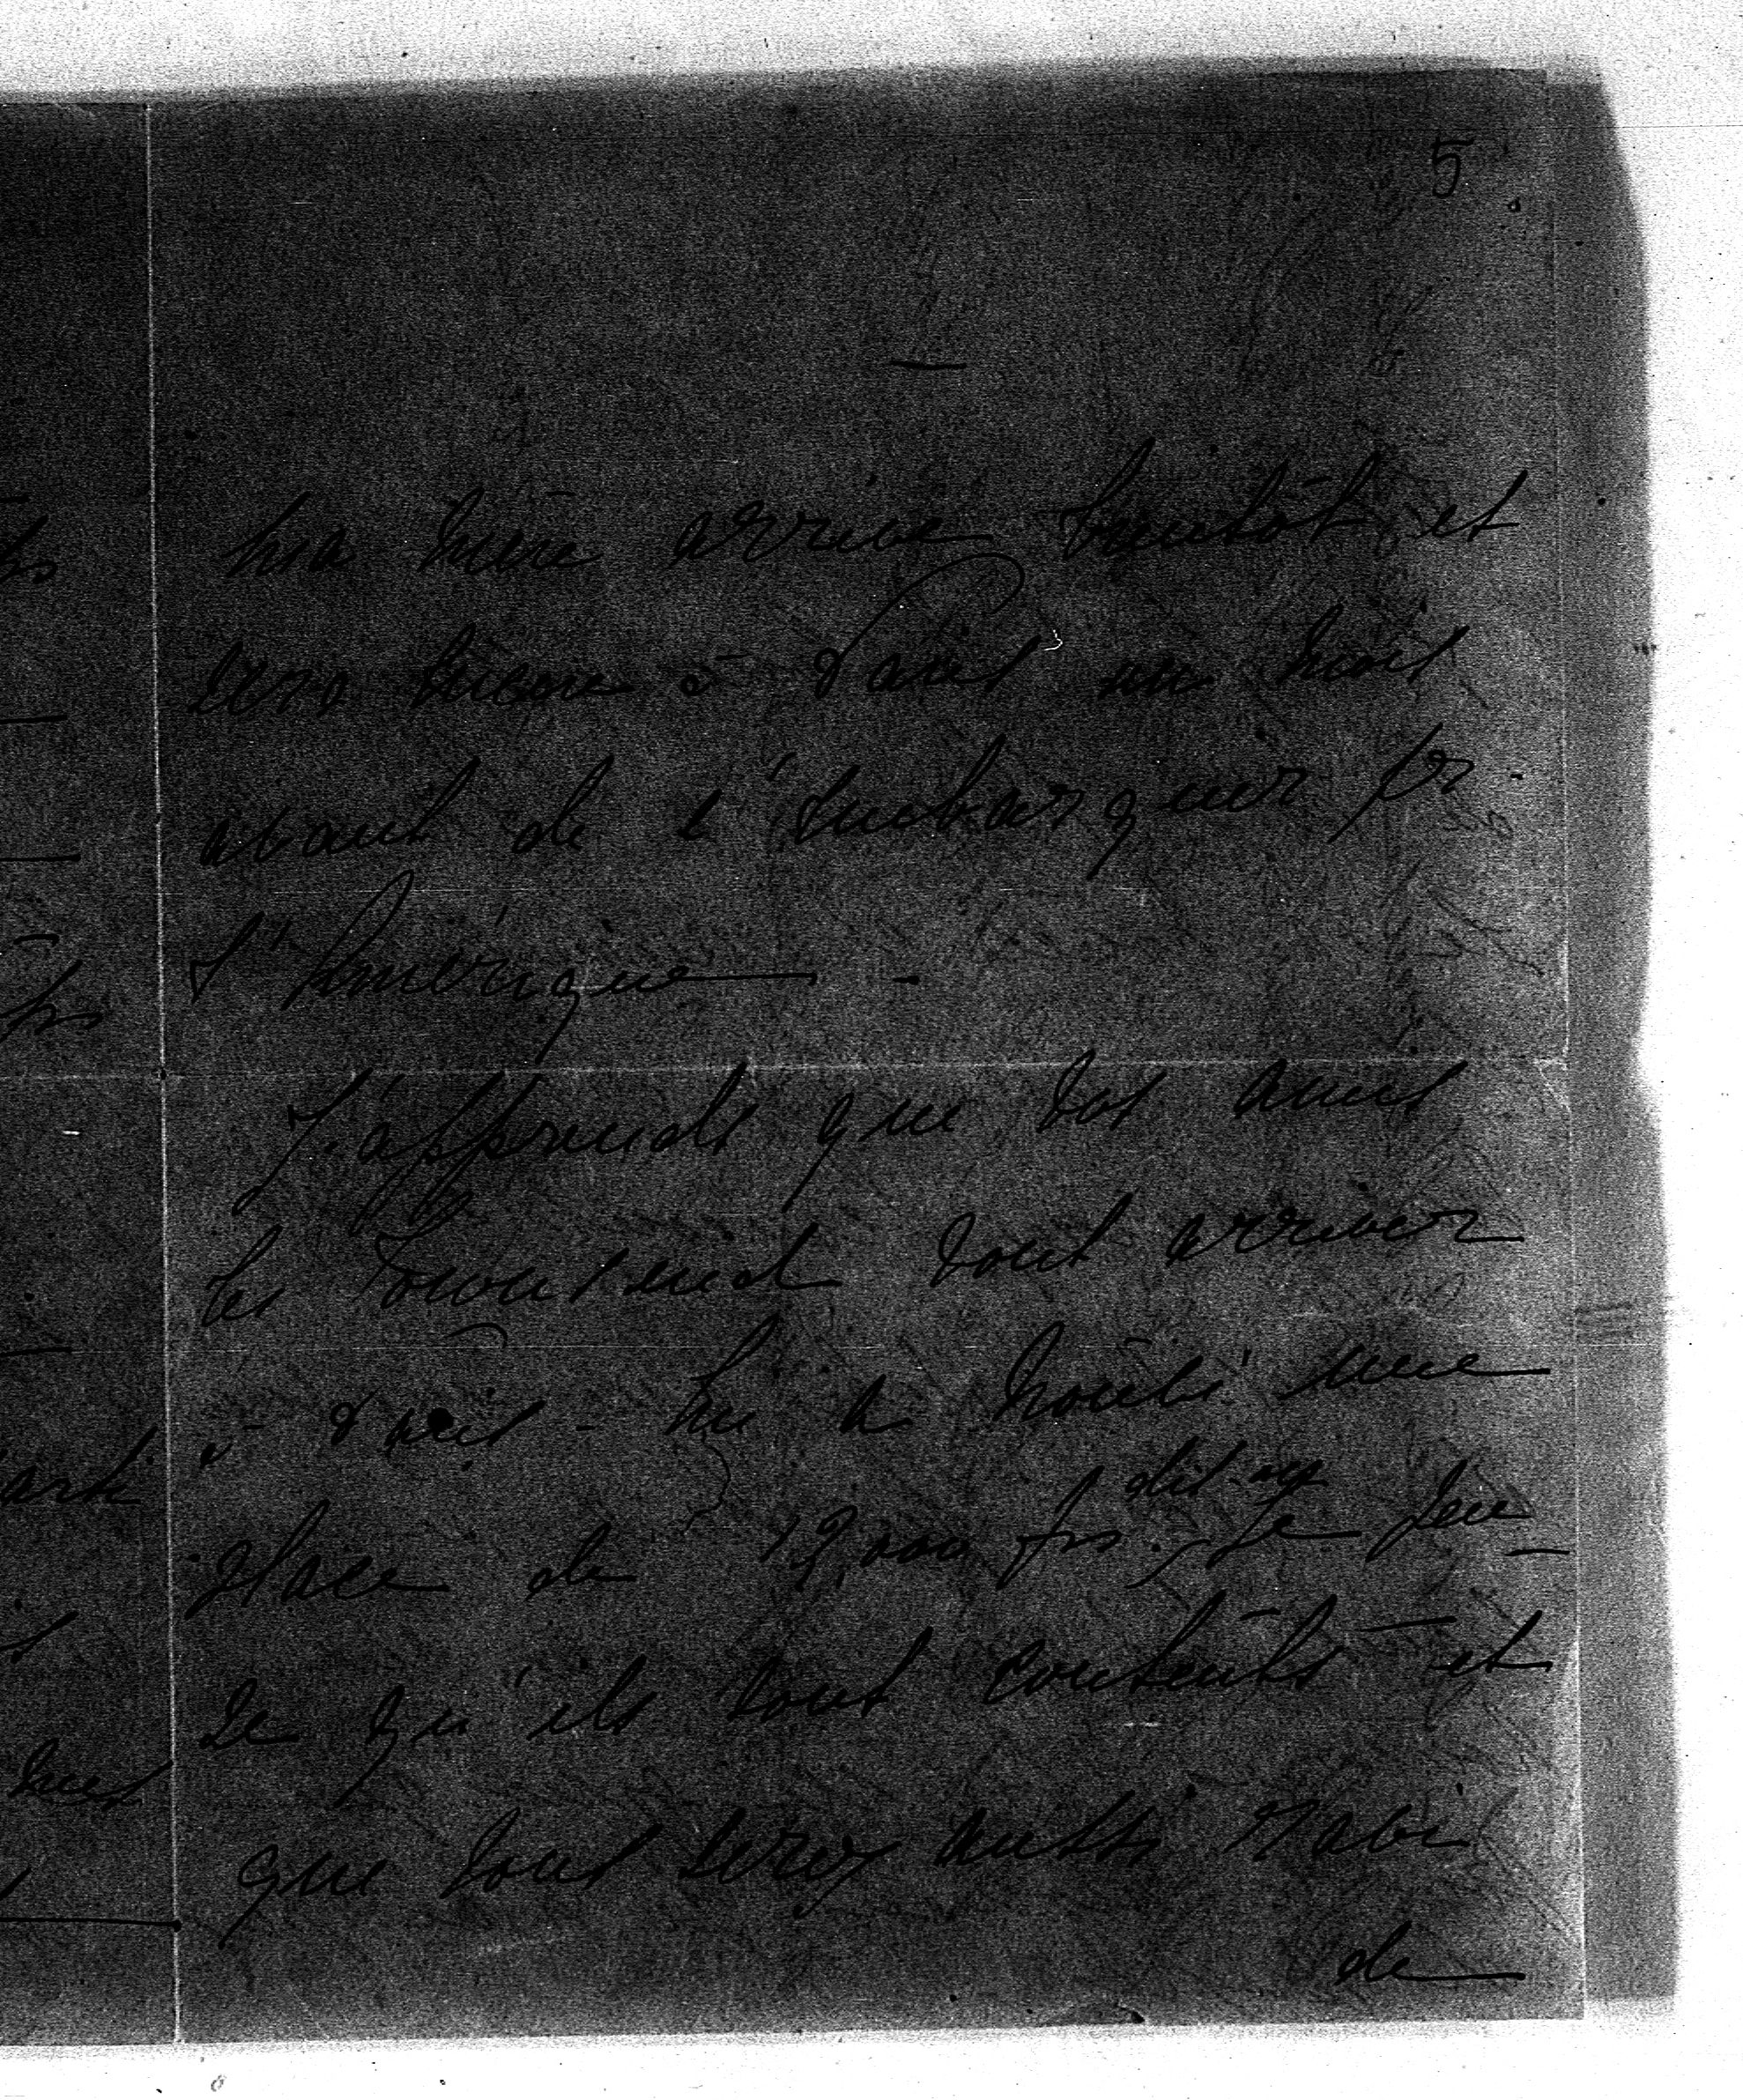 5
ma mère arrive bientôt et
sera encore à Paris un mois
avant de s'embarquer pr.
l'Amérique -
J'apprends que vos amis
les Townsend vont arriver
à Paris - a trouvé une
dit-on
place de 12,000 frs. Je pen-
se qu'ils sont contents et
que vous serez aussi ravi
de